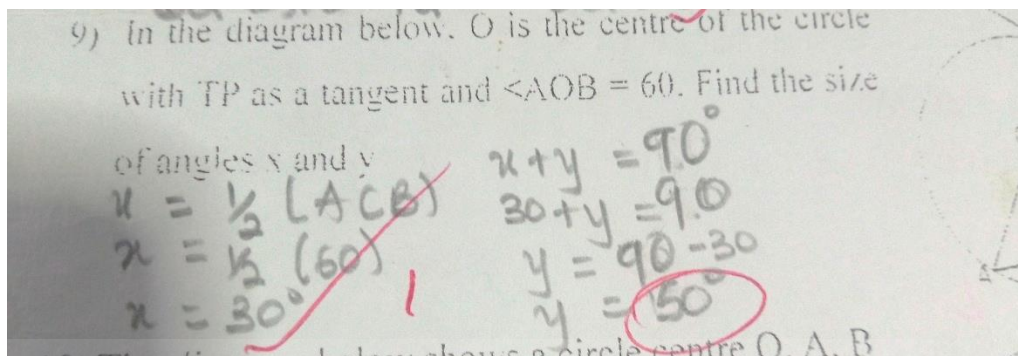 9) In the diagram below. O is the centre of the circle
with TP as a tangent and <AOB = 60. Find the size
of angles x and y
x = 1/2 (ACB)
x = 1/2 (60)
x = 30°
1
x + y = 90°
30 + y = 90
y = 90 - 30
y = 50°
circle centre O. A, B
A